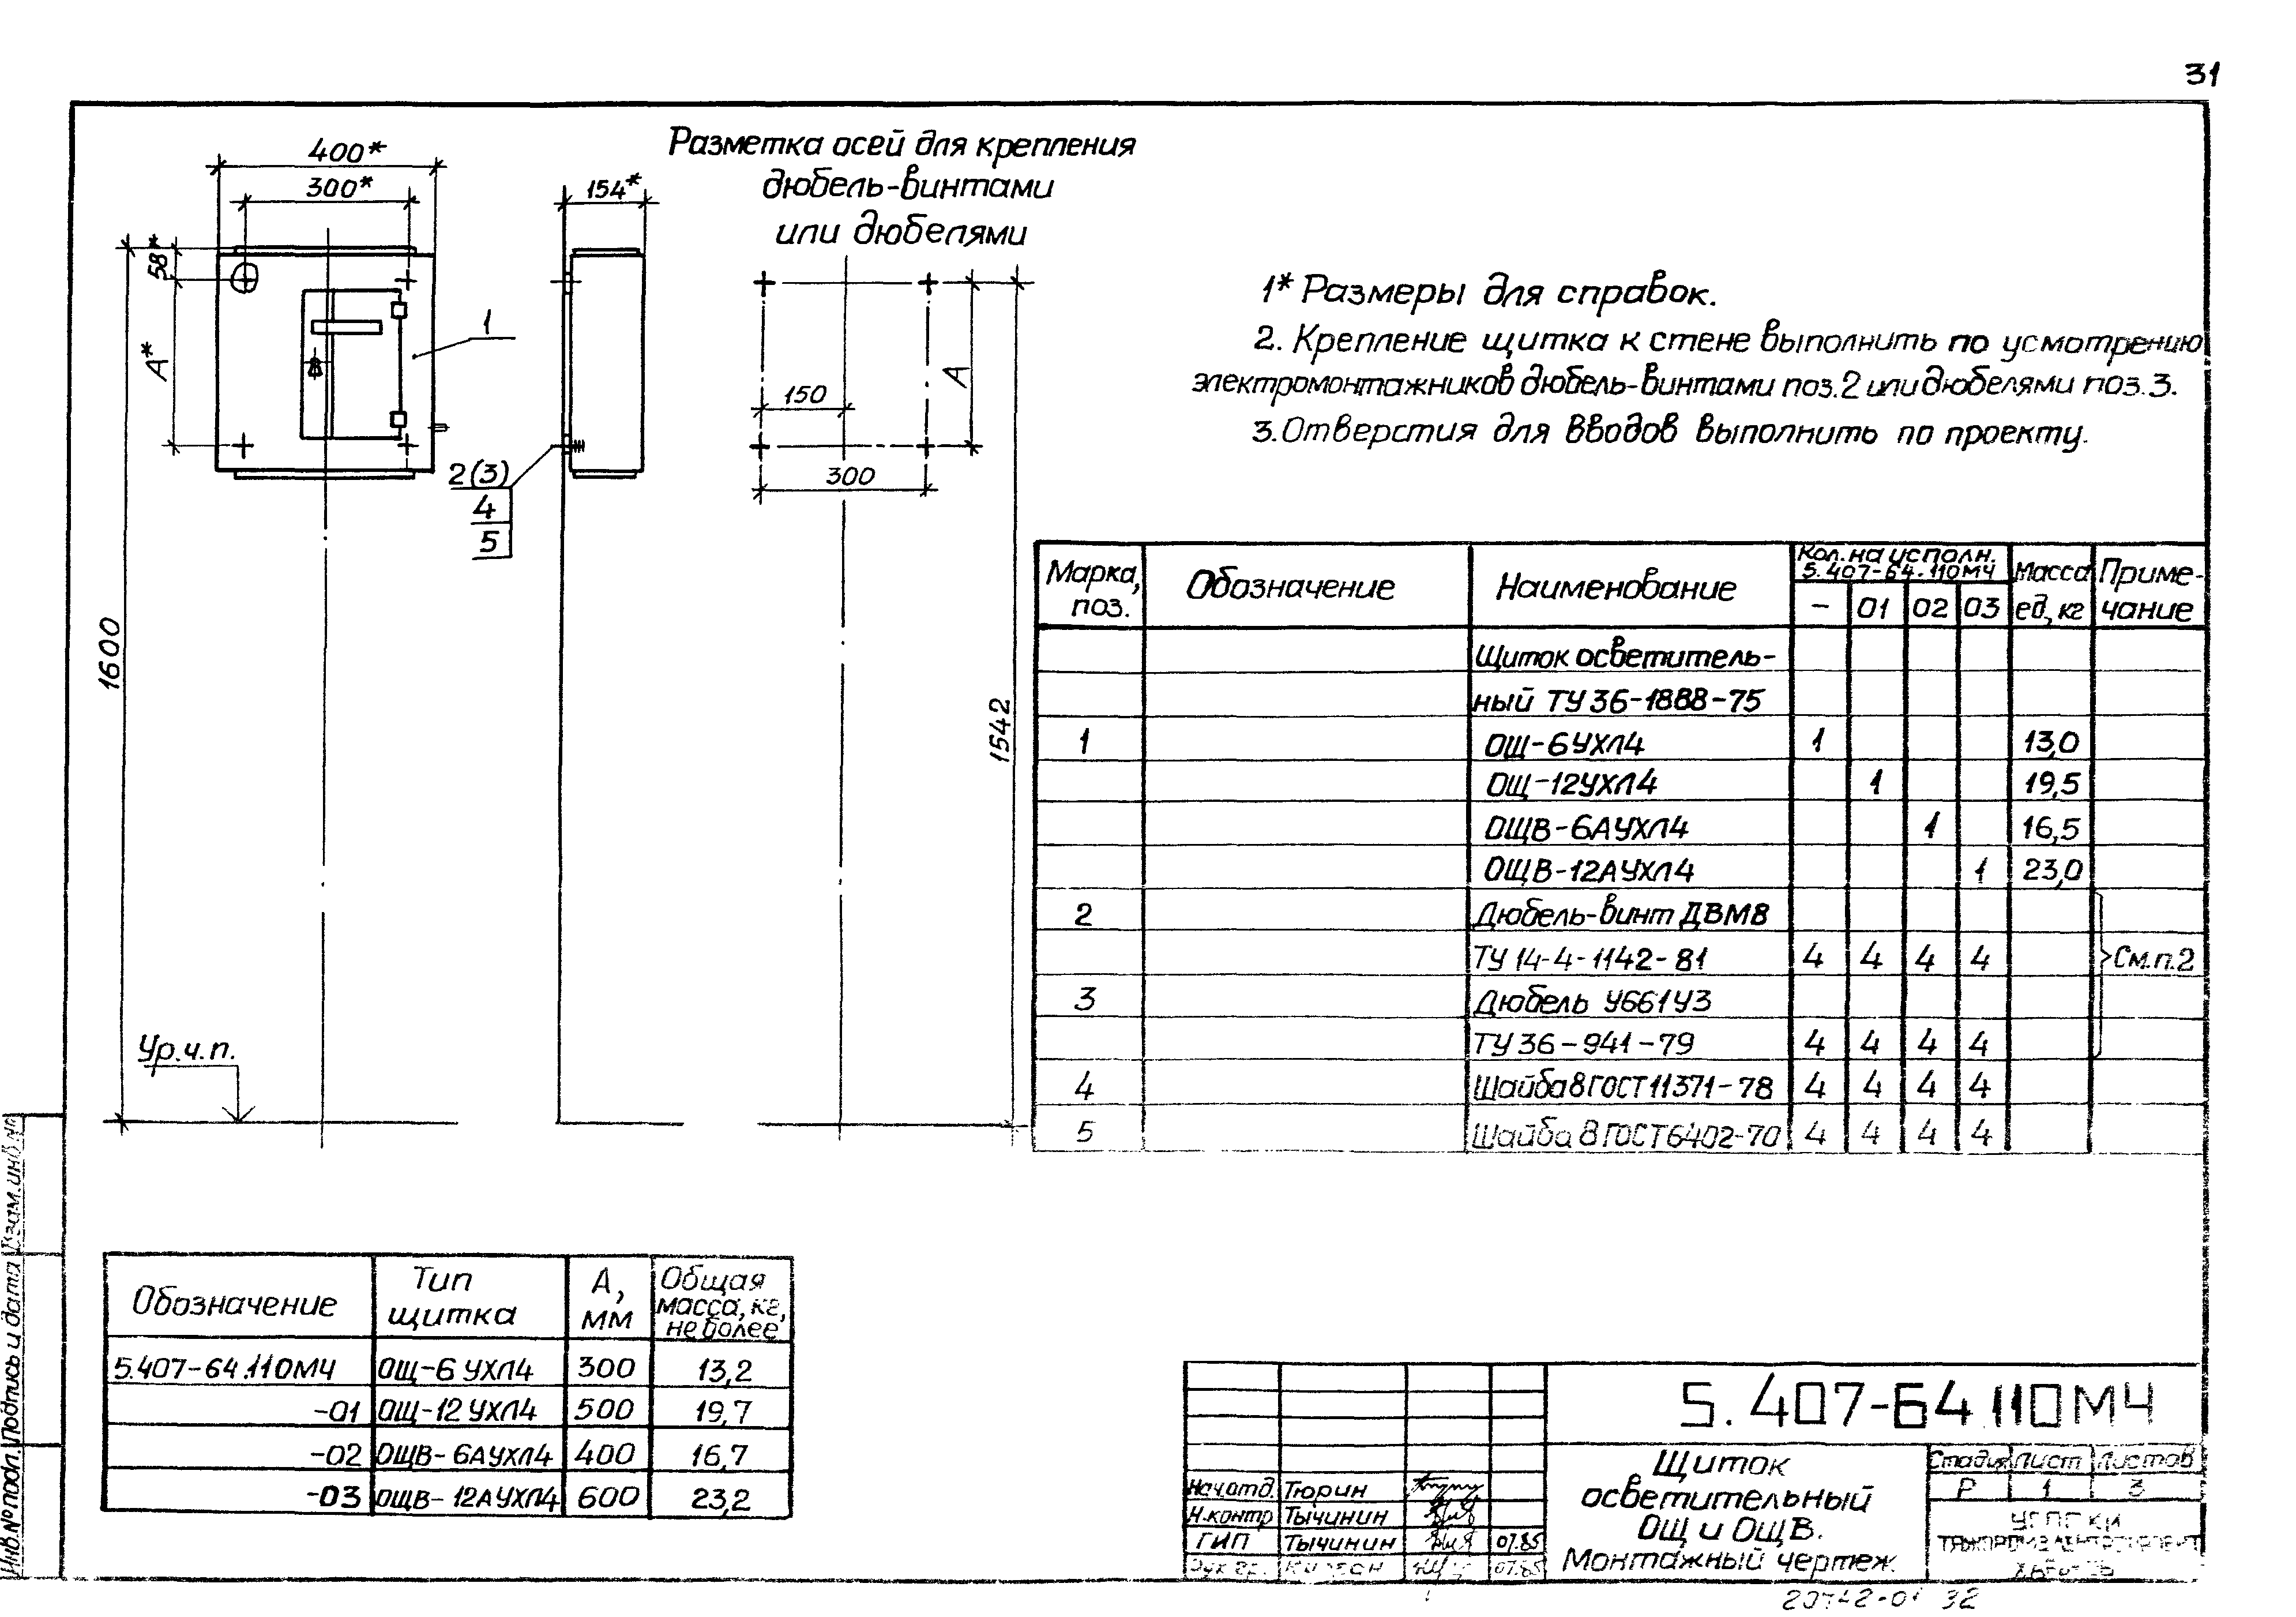 31
400*
300*
58*
А*
1
1600
Ур.ч.п.
154*
2(3)
4
5
Разметка осей для крепления
дюбель-винтами
или дюбелями
150
300
А
1542
1* Размеры для справок.
2. Крепление щитка к стене выполнить по усмотрению
электромонтажников дюбель-винтами поз.2 или дюбелями поз.3.
3. Отверстия для вводов выполнить по проекту.
Марка, поз. Обозначение Наименование Кол. на исполн. 5.407-64.110МЧ Масса ед, кг Примечание
– 01 02 03
Щиток осветитель-
ный ТУ 36-1888-75
1 ОЩ-6УХЛ4 1 13,0
ОЩ-12УХЛ4 1 19,5
ОЩВ-6АУХЛ4 1 16,5
ОЩВ-12АУХЛ4 1 23,0
2 Дюбель-винт ДВМ8
ТУ 14-4-1142-81 4 4 4 4 См.п.2
3 Дюбель У661У3
ТУ 36-941-79 4 4 4 4
4 Шайба 8 ГОСТ 11371-78 4 4 4 4
5 Шайба 8 ГОСТ 6402-70 4 4 4 4
Обозначение Тип щитка А, мм Общая масса, кг, не более
5.407-64.110МЧ ОЩ-6 УХЛ4 300 13,2
-01 ОЩ-12 УХЛ4 500 19,7
-02 ОЩВ-6АУХЛ4 400 16,7
-03 ОЩВ-12АУХЛ4 600 23,2
5.407-64.110МЧ
Щиток
осветительный
ОЩ и ОЩВ.
Монтажный чертеж.
Стадия Лист Листов
Р 1 3
Нач.отд. Тюрин
Н.контр Тычинин
ГИП Тычинин 07.85
07.85
Инв.№ подл. Подпись и дата Взам.инв.№
20742-01 32